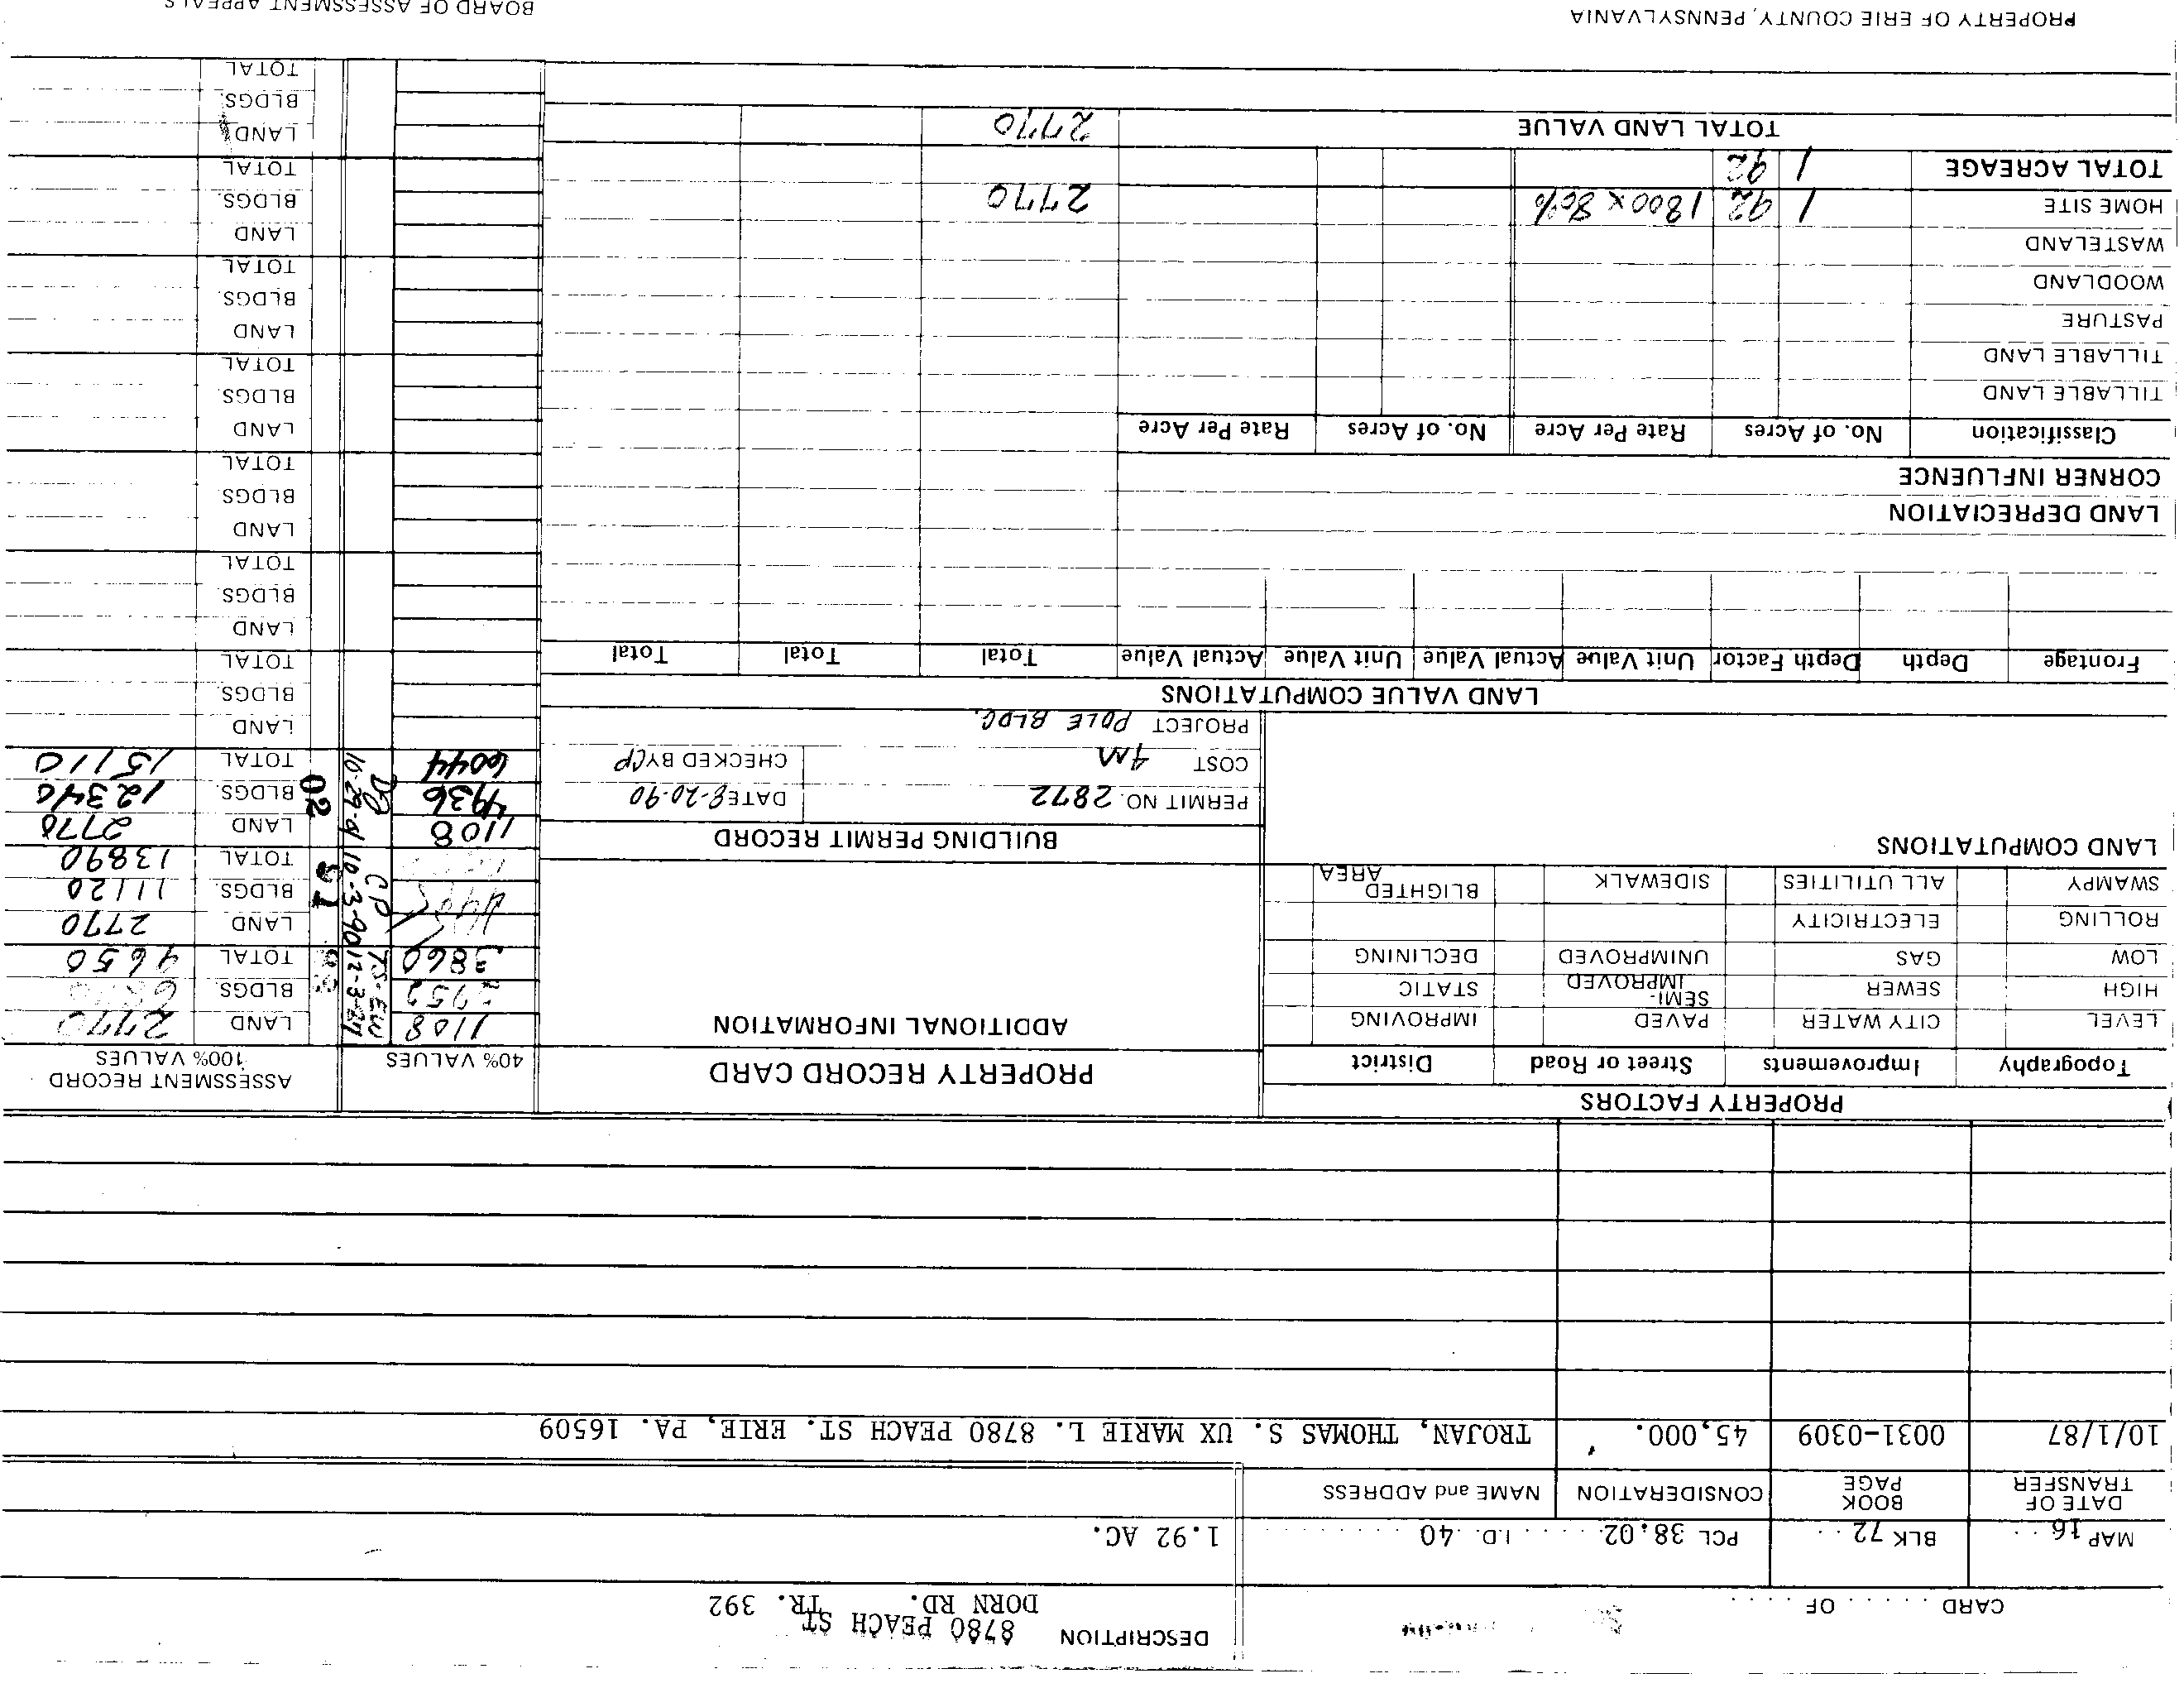 DESCRIPTION 8780 PEACH ST
DORN RD. TR. 392
CARD . . . . . OF . . . .
MAP 16 BLK 72 PCL 38.02 I.D. 40 1.92 AC.
DATE OF TRANSFER BOOK PAGE CONSIDERATION NAME and ADDRESS
10/1/87 0031-0309 45,000. TROJAN, THOMAS S. UX MARIE L. 8780 PEACH ST. ERIE, PA. 16509
PROPERTY FACTORS
Topography Improvements Street or Road District
LEVEL CITY WATER PAVED IMPROVING
HIGH SEWER SEMI-IMPROVED STATIC
LOW GAS UNIMPROVED DECLINING
ROLLING ELECTRICITY
SWAMPY ALL UTILITIES SIDEWALK BLIGHTED AREA
LAND COMPUTATIONS
PROPERTY RECORD CARD
ADDITIONAL INFORMATION
BUILDING PERMIT RECORD
PERMIT NO. 2872 DATE 8-20-90
COST 4M CHECKED BY CP
PROJECT POLE BLDG.
40% VALUES ASSESSMENT RECORD
100% VALUES
1108 TS-EW 12-3-87 LAND 2770
2752 BLDGS.
3860 TOTAL 9650
CP 10-3-90 91 LAND 2770
BLDGS. 11120
TOTAL 13890
1108 DD 10-29-91 02 LAND 2770
4936 BLDGS. 12340
6044 TOTAL 15110
LAND
BLDGS.
TOTAL
LAND
BLDGS.
TOTAL
LAND
BLDGS.
TOTAL
LAND
BLDGS.
TOTAL
LAND
BLDGS.
TOTAL
LAND
BLDGS.
TOTAL
LAND
BLDGS.
TOTAL
LAND VALUE COMPUTATIONS
Frontage Depth Depth Factor Unit Value Actual Value Unit Value Actual Value Total Total Total
LAND DEPRECIATION
CORNER INFLUENCE
Classification No. of Acres Rate Per Acre No. of Acres Rate Per Acre
TILLABLE LAND
TILLABLE LAND
PASTURE
WOODLAND
WASTELAND
HOME SITE 1 92 1800 x 80% 2770
TOTAL ACREAGE 1 92
TOTAL LAND VALUE 2770
PROPERTY OF ERIE COUNTY, PENNSYLVANIA BOARD OF ASSESSMENT APPEALS